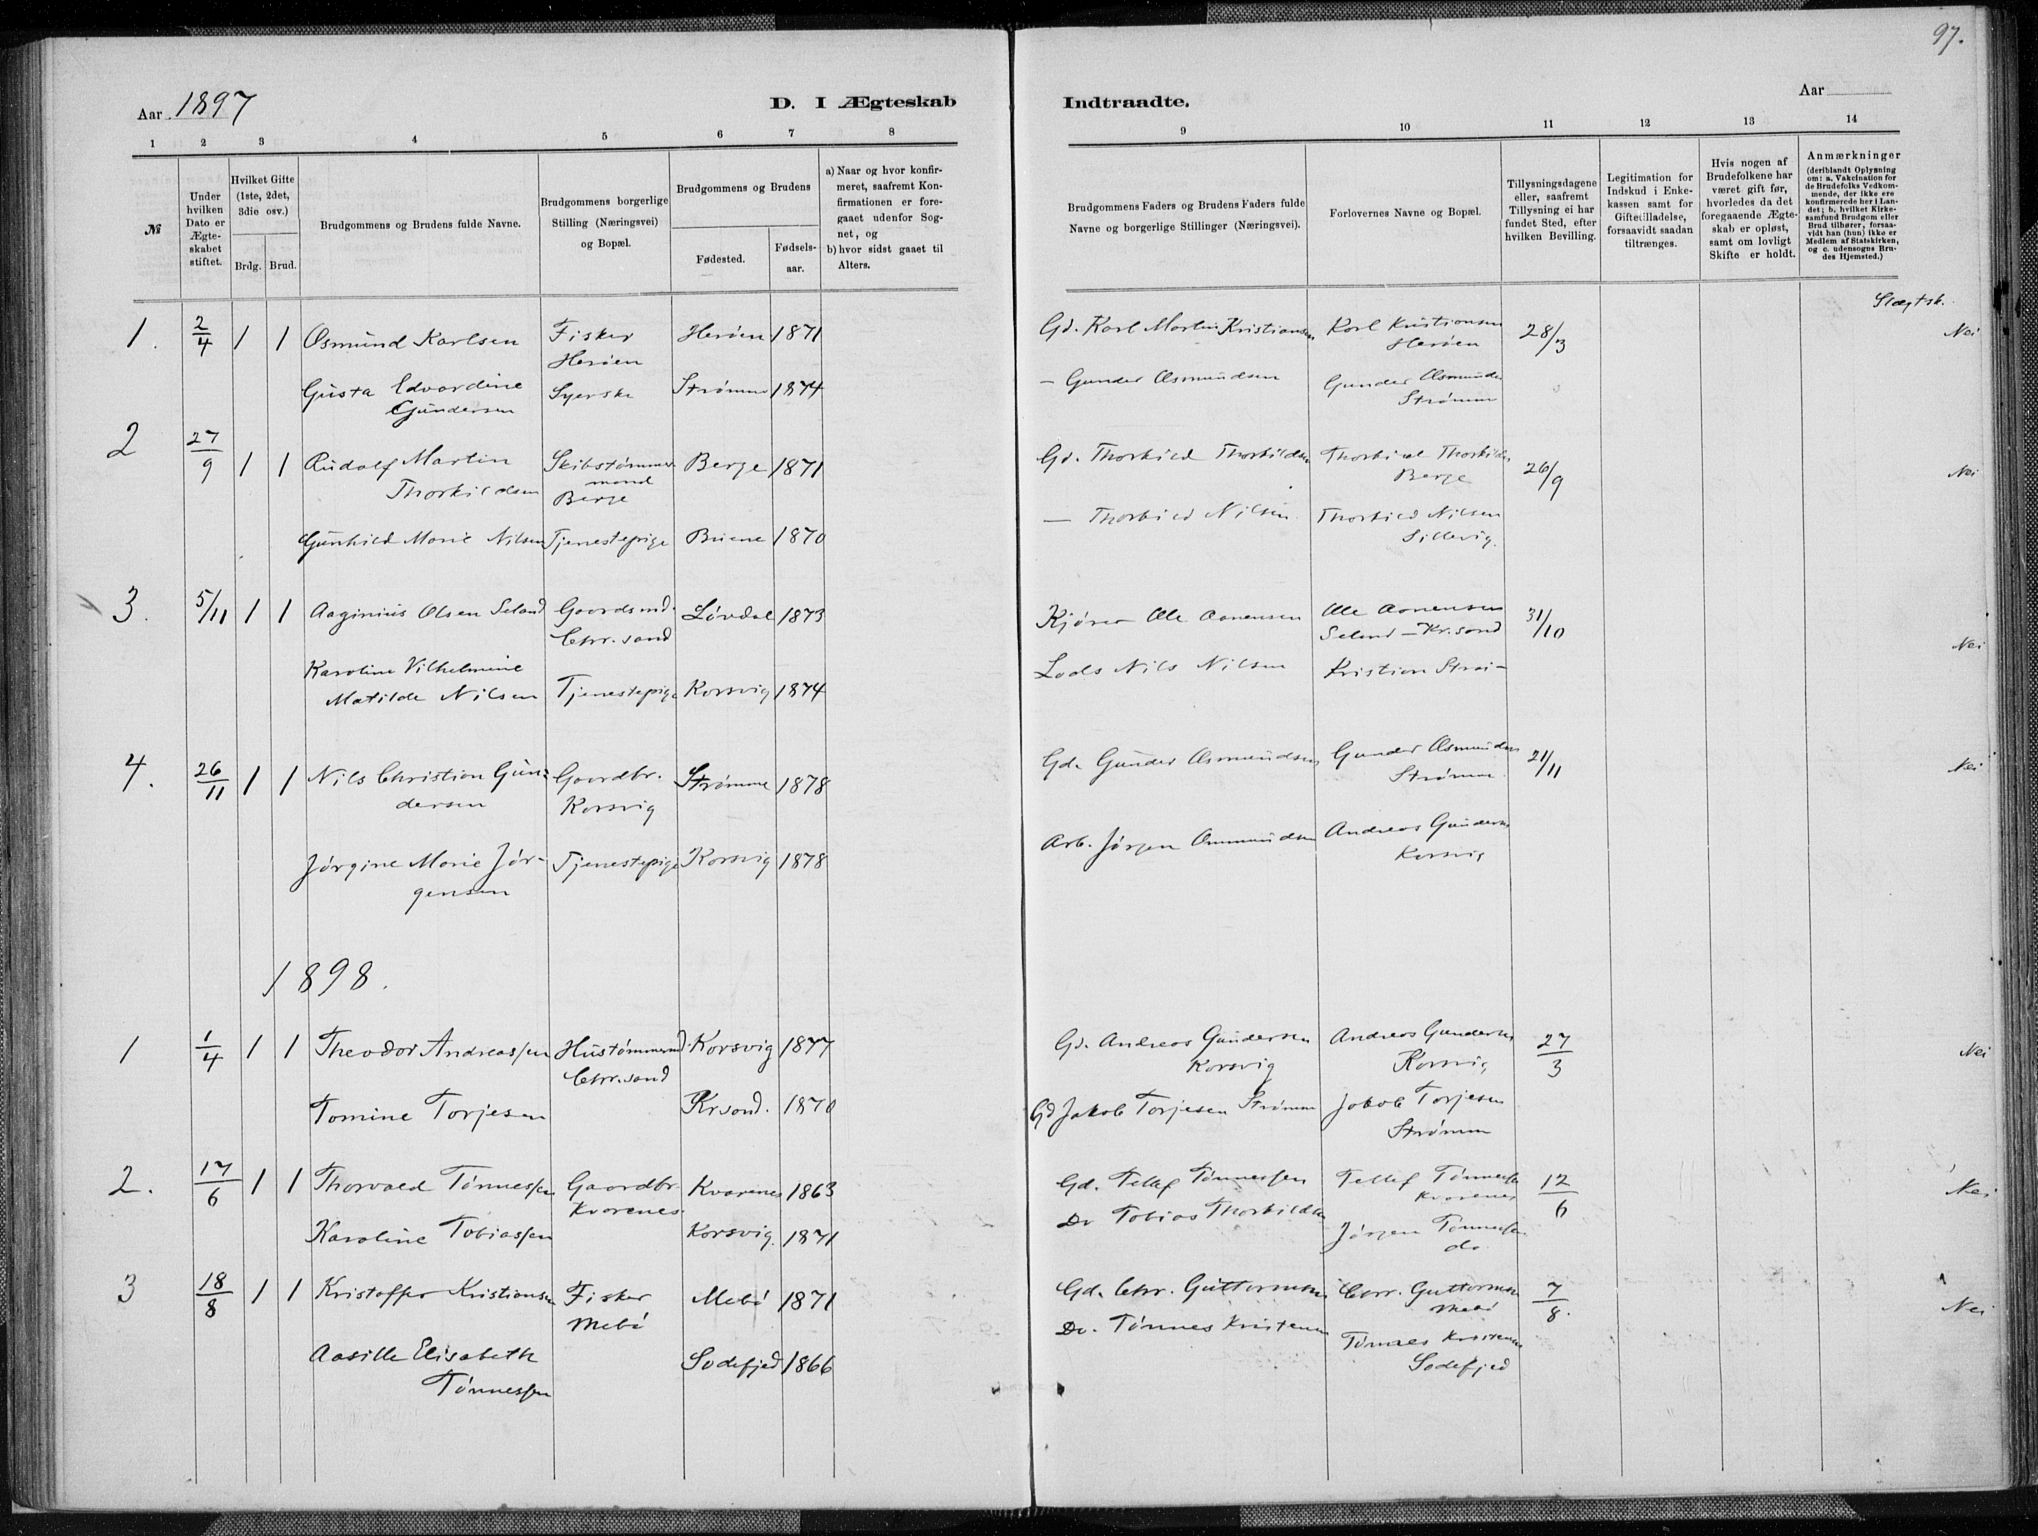 97.
Aar 1897
D. I Ægteskab
Indtraadte.
Aar
1 2 3 4 5 6 7 8
9 10 11 12 13 14
№
Under hvilken Dato er Ægteskabet stiftet.
Hvilket Gifte (1ste, 2det, 3die osv.)
Brdg. Brud.
Brudgommens og Brudens fulde Navne.
Brudgommens borgerlige Stilling (Næringsvei) og Bopæl.
Brudgommens og Brudens
Fødested.
Fødsels-aar.
a) Naar og hvor konfirmeret, saafremt Konfirmationen er foregaaet udenfor Sognet, og
b) hvor sidst gaaet til Alters.
Brudgommens Faders og Brudens Faders fulde Navne og borgerlige Stillinger (Næringsvei).
Forlovernes Navne og Bopæl.
Tillysningsdagene eller, saafremt Tillysning ei har fundet Sted, efter hvilken Bevilling.
Legitimation for Indskud i Enkekassen samt for Giftetilladelse, forsaavidt saadan tiltrænges.
Hvis nogen af Brudefolkene har været gift før, hvorledes da det foregaaende Ægteskab er opløst, samt om lovligt Skifte er holdt.
Anmærkninger
(deriblandt Oplysning om: a. Vakcination for de Brudefolks Vedkommende, der ikke ere konfirmerede her i Landet; b. hvilket Kirkesamfund Brudgom eller Brud tilhører, forsaavidt han (hun) ikke er Medlem af Statskirken, og c. udensogns Brudes Hjemsted.)
Slægtsk.
1. 2/4 1 1 Osmund Karlsen Fisker Herøen Herøen 1871 Gd. Karl Martin Kristiansen Karl Kristiansen Herøen 28/3 Nei
Gusta Edvardine Gundersen Syerske Strømme 1874 — Gunder Osmundsen Gunder Osmundsen Strømme
2 27/9 1 1 Rudolf Martin Thorkildsen Skibstømmermand Berge Berge 1871 Gd. Thorkild Thorkildsen Thorkild Thorkildsen Berge 26/9 Nei
Gunhild Marie Nilsen Tjenestepige Bruene 1870 — Thorkild Nilsen Thorkild Nilsen Sillevig.
3. 5/11 1 1 Aaginius Olsen Seland Gaardsmd. Chr.sand Løvdal 1873 Kjører Ole Aanensen Ole Aanensen Seland – Kr.sand 31/10 Nei
Karoline Vilhelmine Matilde Nilsen Tjenestepige Korsvig 1874 Lods Nils Nilsen Kristian Strai –
4. 26/11 1 1 Nils Christian Gundersen Gaardbr. Korsvig Strømme 1878 Gd. Gunder Osmundsen Gunder Osmundsen Strømme. 21/11 Nei
Jørgine Marie Jørgensen Tjenestepige Korsvig 1878 Arb. Jørgen Ommundsen Andreas Gundersen Korsvig
1898.
1 1/4 1 1 Theodor Andreassen Hustømmermd. Chr.sand Korsvig 1877 Gd. Andreas Gundersen Korsvig Andreas Gundersen Korsvig 27/3 Nei
Tomine Torjesen Krsand. 1870 Gd Jakob Torjesen Strømme Jakob Torjesen Strømme
2. 17/6 1 1 Thorvald Tønnessen Gaardbr. Kvarenes. Kvarenes 1863 Gd. Tellef Tønnessen Tellef Tønnessen Kvarenes 12/6 Nei
Karoline Tobiassen Korsvig. 1871 Do Tobias Thorkildsen Jørgen Tønnessen do.
3 18/8 1 1 Kristoffer Kristiansen Fisker Mebø Mebø 1871 Gd. Chr. Guttormsen Chr. Guttormsen Mebø 7/8. Nei
Aasille Elisabeth Tønnessen Sodefjed 1866 Do. Tønnes Kristensen Tønnes Kristensen Sodefjed